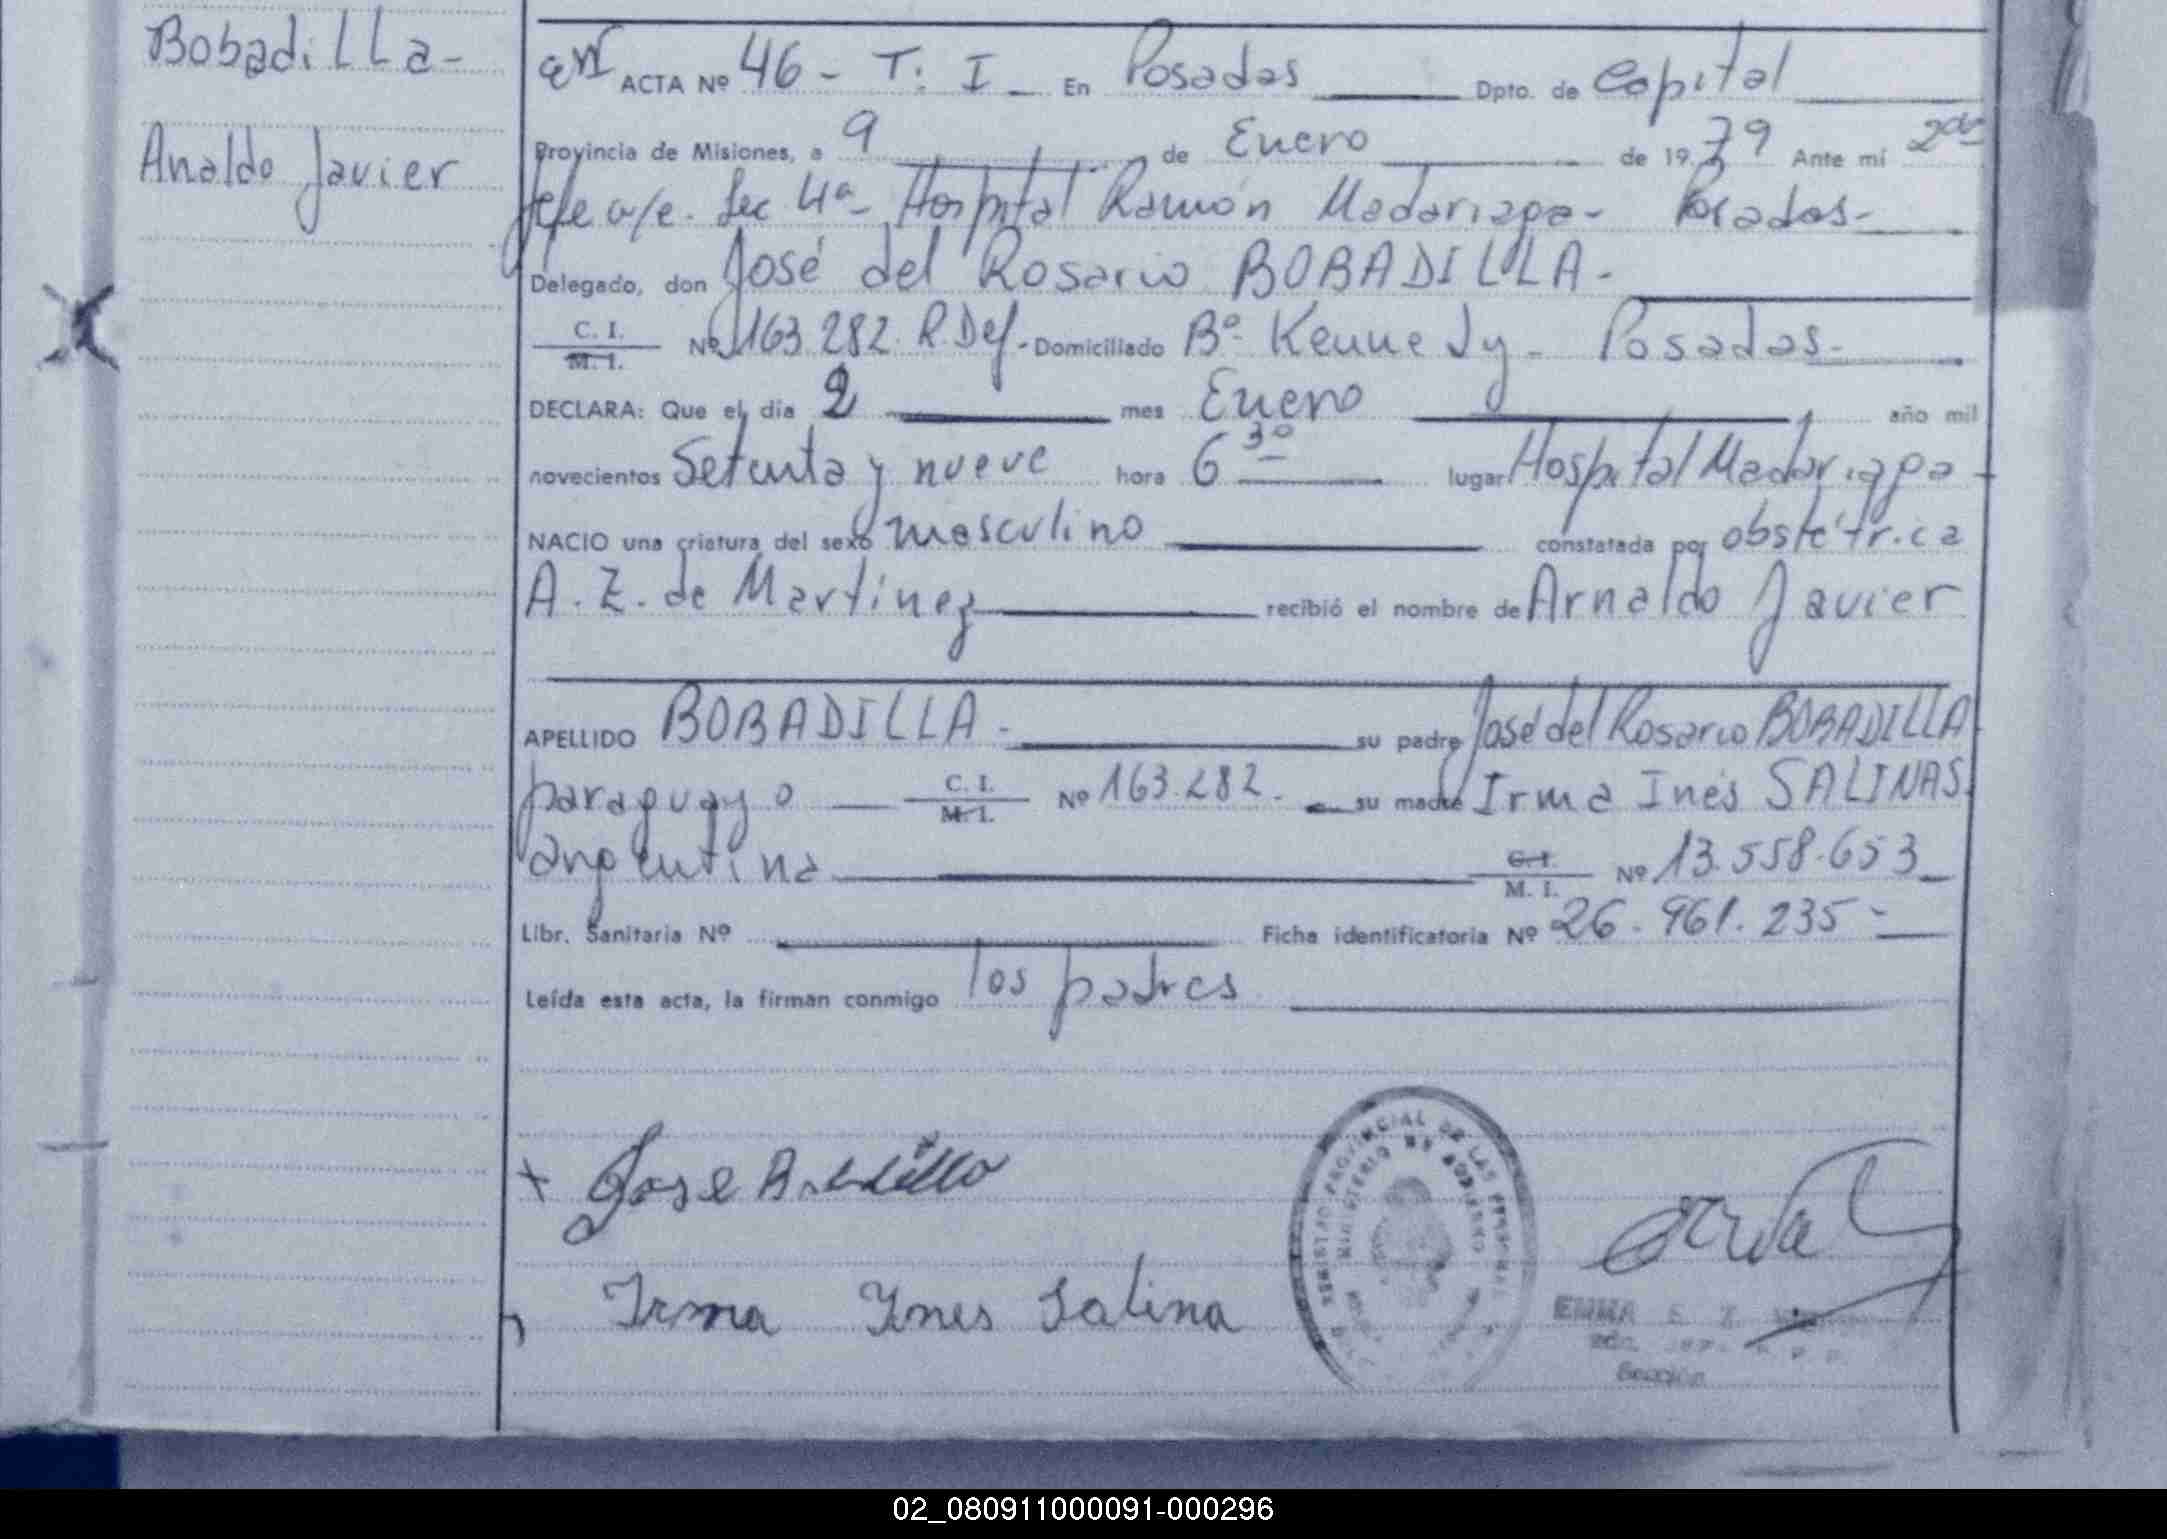 Bobadilla-
Analdo Javier
ACTA Nº 46 - T: I - En Posadas Dpto. de Capital
Provincia de Misiones, a 9 de Enero de 1979 Ante mí 2da
Jefe a/c. Sec 4ª- Hospital Ramón Madariaga- Posadas-
Delegado, don José del Rosario BOBADILLA-
C. I.
M. I. Nº 163.282. R.Def.- Domiciliado Bº Kennedy - Posadas-
DECLARA: Que el día 2 mes Enero año mil
novecientos Setenta y nueve hora 6 30 lugar Hospital Madariaga-
NACIO una criatura del sexo masculino constatada por obstétrica
A. Z. de Martinez recibió el nombre de Arnaldo Javier
APELLIDO BOBADILLA- su padre José del Rosario BOBADILLA
paraguayo C. I. M. I. Nº 163.282.- su madre Irma Inés SALINAS.
argentina C. I. M. I. Nº 13.558.653
Libr. Sanitaria Nº Ficha identificatoria Nº 26.961.235-
Leída esta acta, la firman conmigo los padres
+ Jose Bobadilla
Irma Ynes Salina
REGISTRO PROVINCIAL DE LAS PERSONAS
MINISTERIO DE GOBIERNO
EMMA E. Z.
Sección
02_080911000091-000296